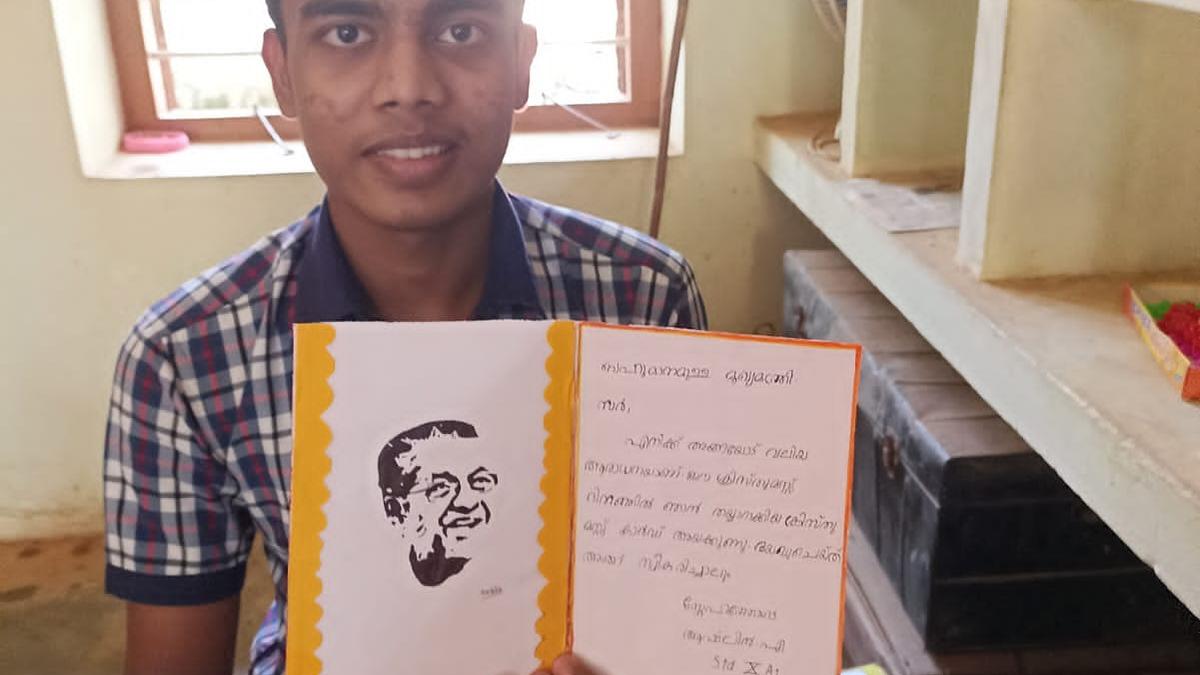 ബഹുമാനമുള്ള മുഖ്യമന്ത്രി
സർ,
എനിക്ക് അങ്ങയോട് വലിയ
ആരാധനയാണ് ഈ ക്രിസ്തുമസ്സ്
ദിനത്തിൽ ഞാൻ തയ്യാറാക്കിയ ക്രിസ്തു
മസ്സ് കാർഡ് അയക്കുന്നു. ദയവുചെയ്ത്
അത് സ്വീകരിച്ചാലും
സ്നേഹത്തോടെ
Std X A1